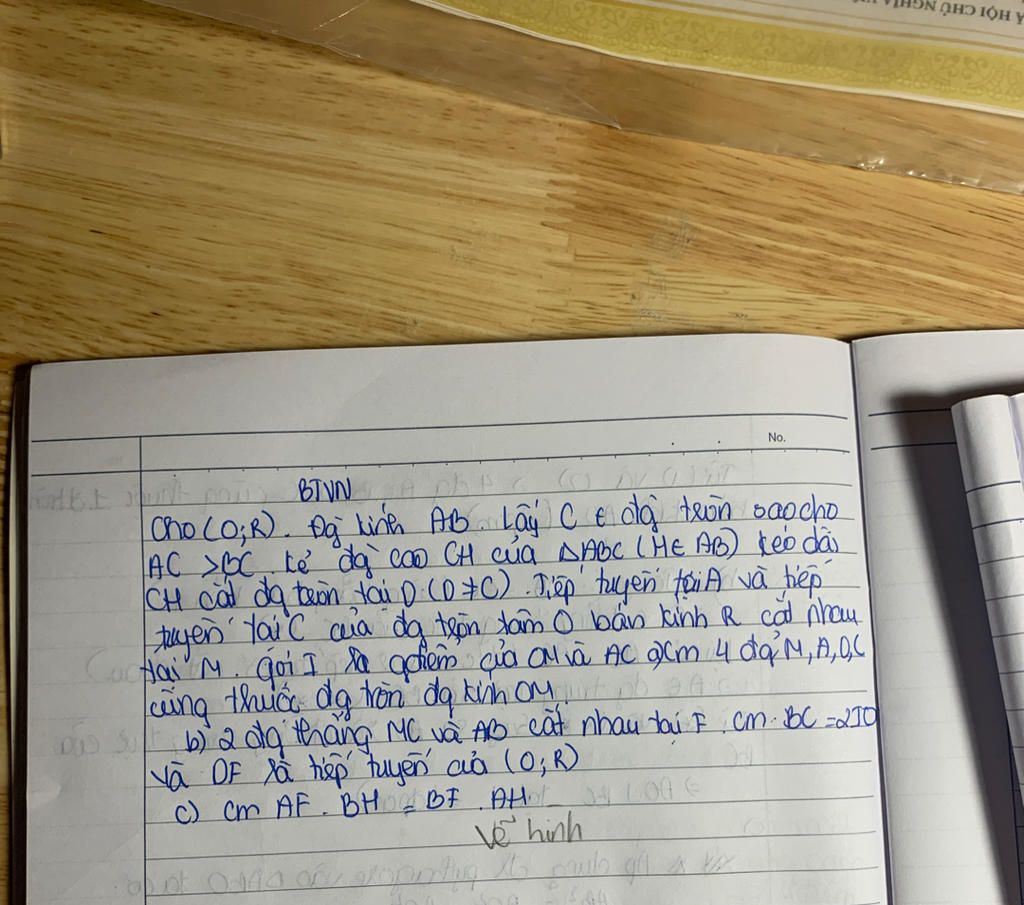 No.
BTVN
Cho (O;R). Đg kính AB Lấy C ∈ đg tròn sao cho
AC > BC. kẻ đg cao CH của △ABC (H∈ AB) kéo dài
CH cắt đg tròn tại D (D ≠ C). Tiếp tuyến tại A và tiếp
tuyến tại C của đg tròn tâm O bán kính R cắt nhau
tại M. gọi I là gđiểm của OM và AC a) cm 4 đ' M, A, O, C
cùng thuộc đg tròn đg kính OM.
b) 2 đg thẳng MC và AB cắt nhau tại F. cm. BC = 2IO
và DF là tiếp tuyến của (O; R)
c) cm AF. BH = BF. AH.
Vẽ hình